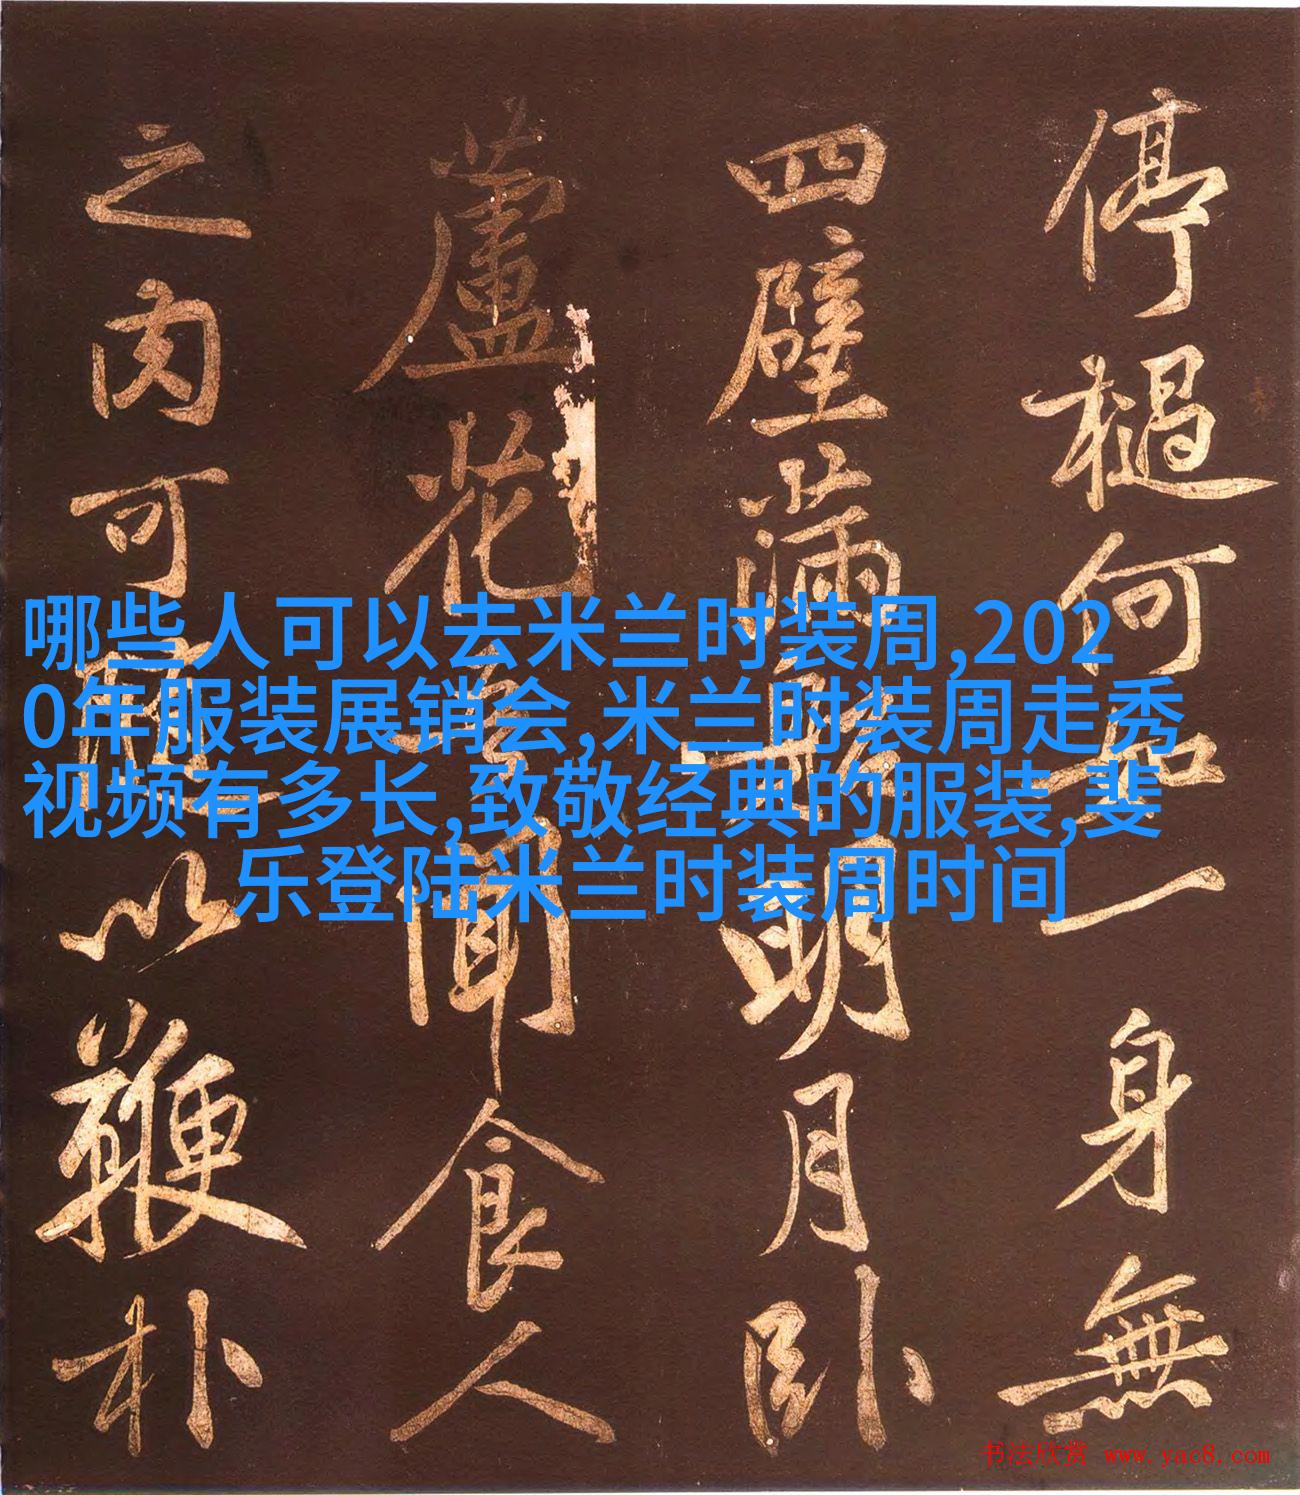 停檛何如一身無
四壁滿舞明月卧
蘆花
聞食人
之肉可
以鞭朴
哪些人可以去米兰时装周,202
0年服装展销会,米兰时装周走秀
视频有多长,致敬经典的服装,斐
乐登陆米兰时装周时间
书法欣赏 www.yac8.com